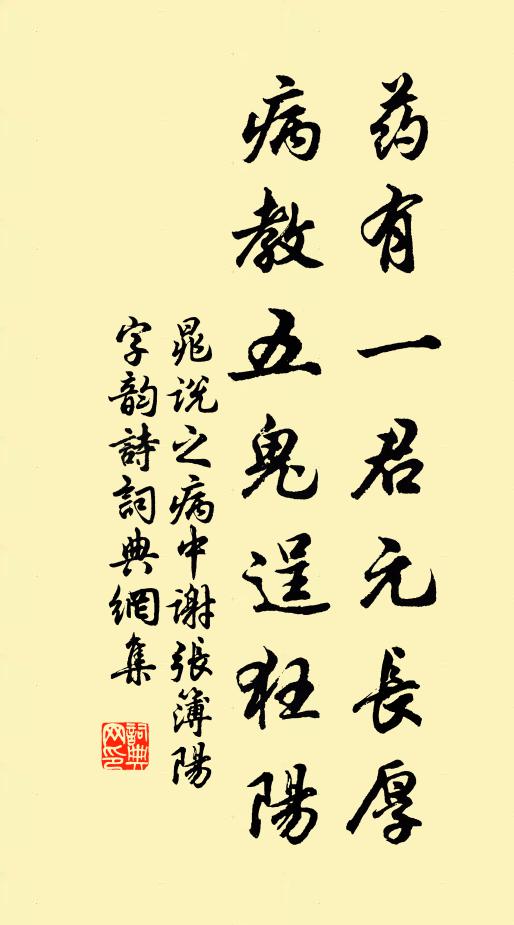 药有一君元長厚
病教五鬼逞狂陽
晁说之病中谢張簿陽
字韵詩詞典網集
詞典网印